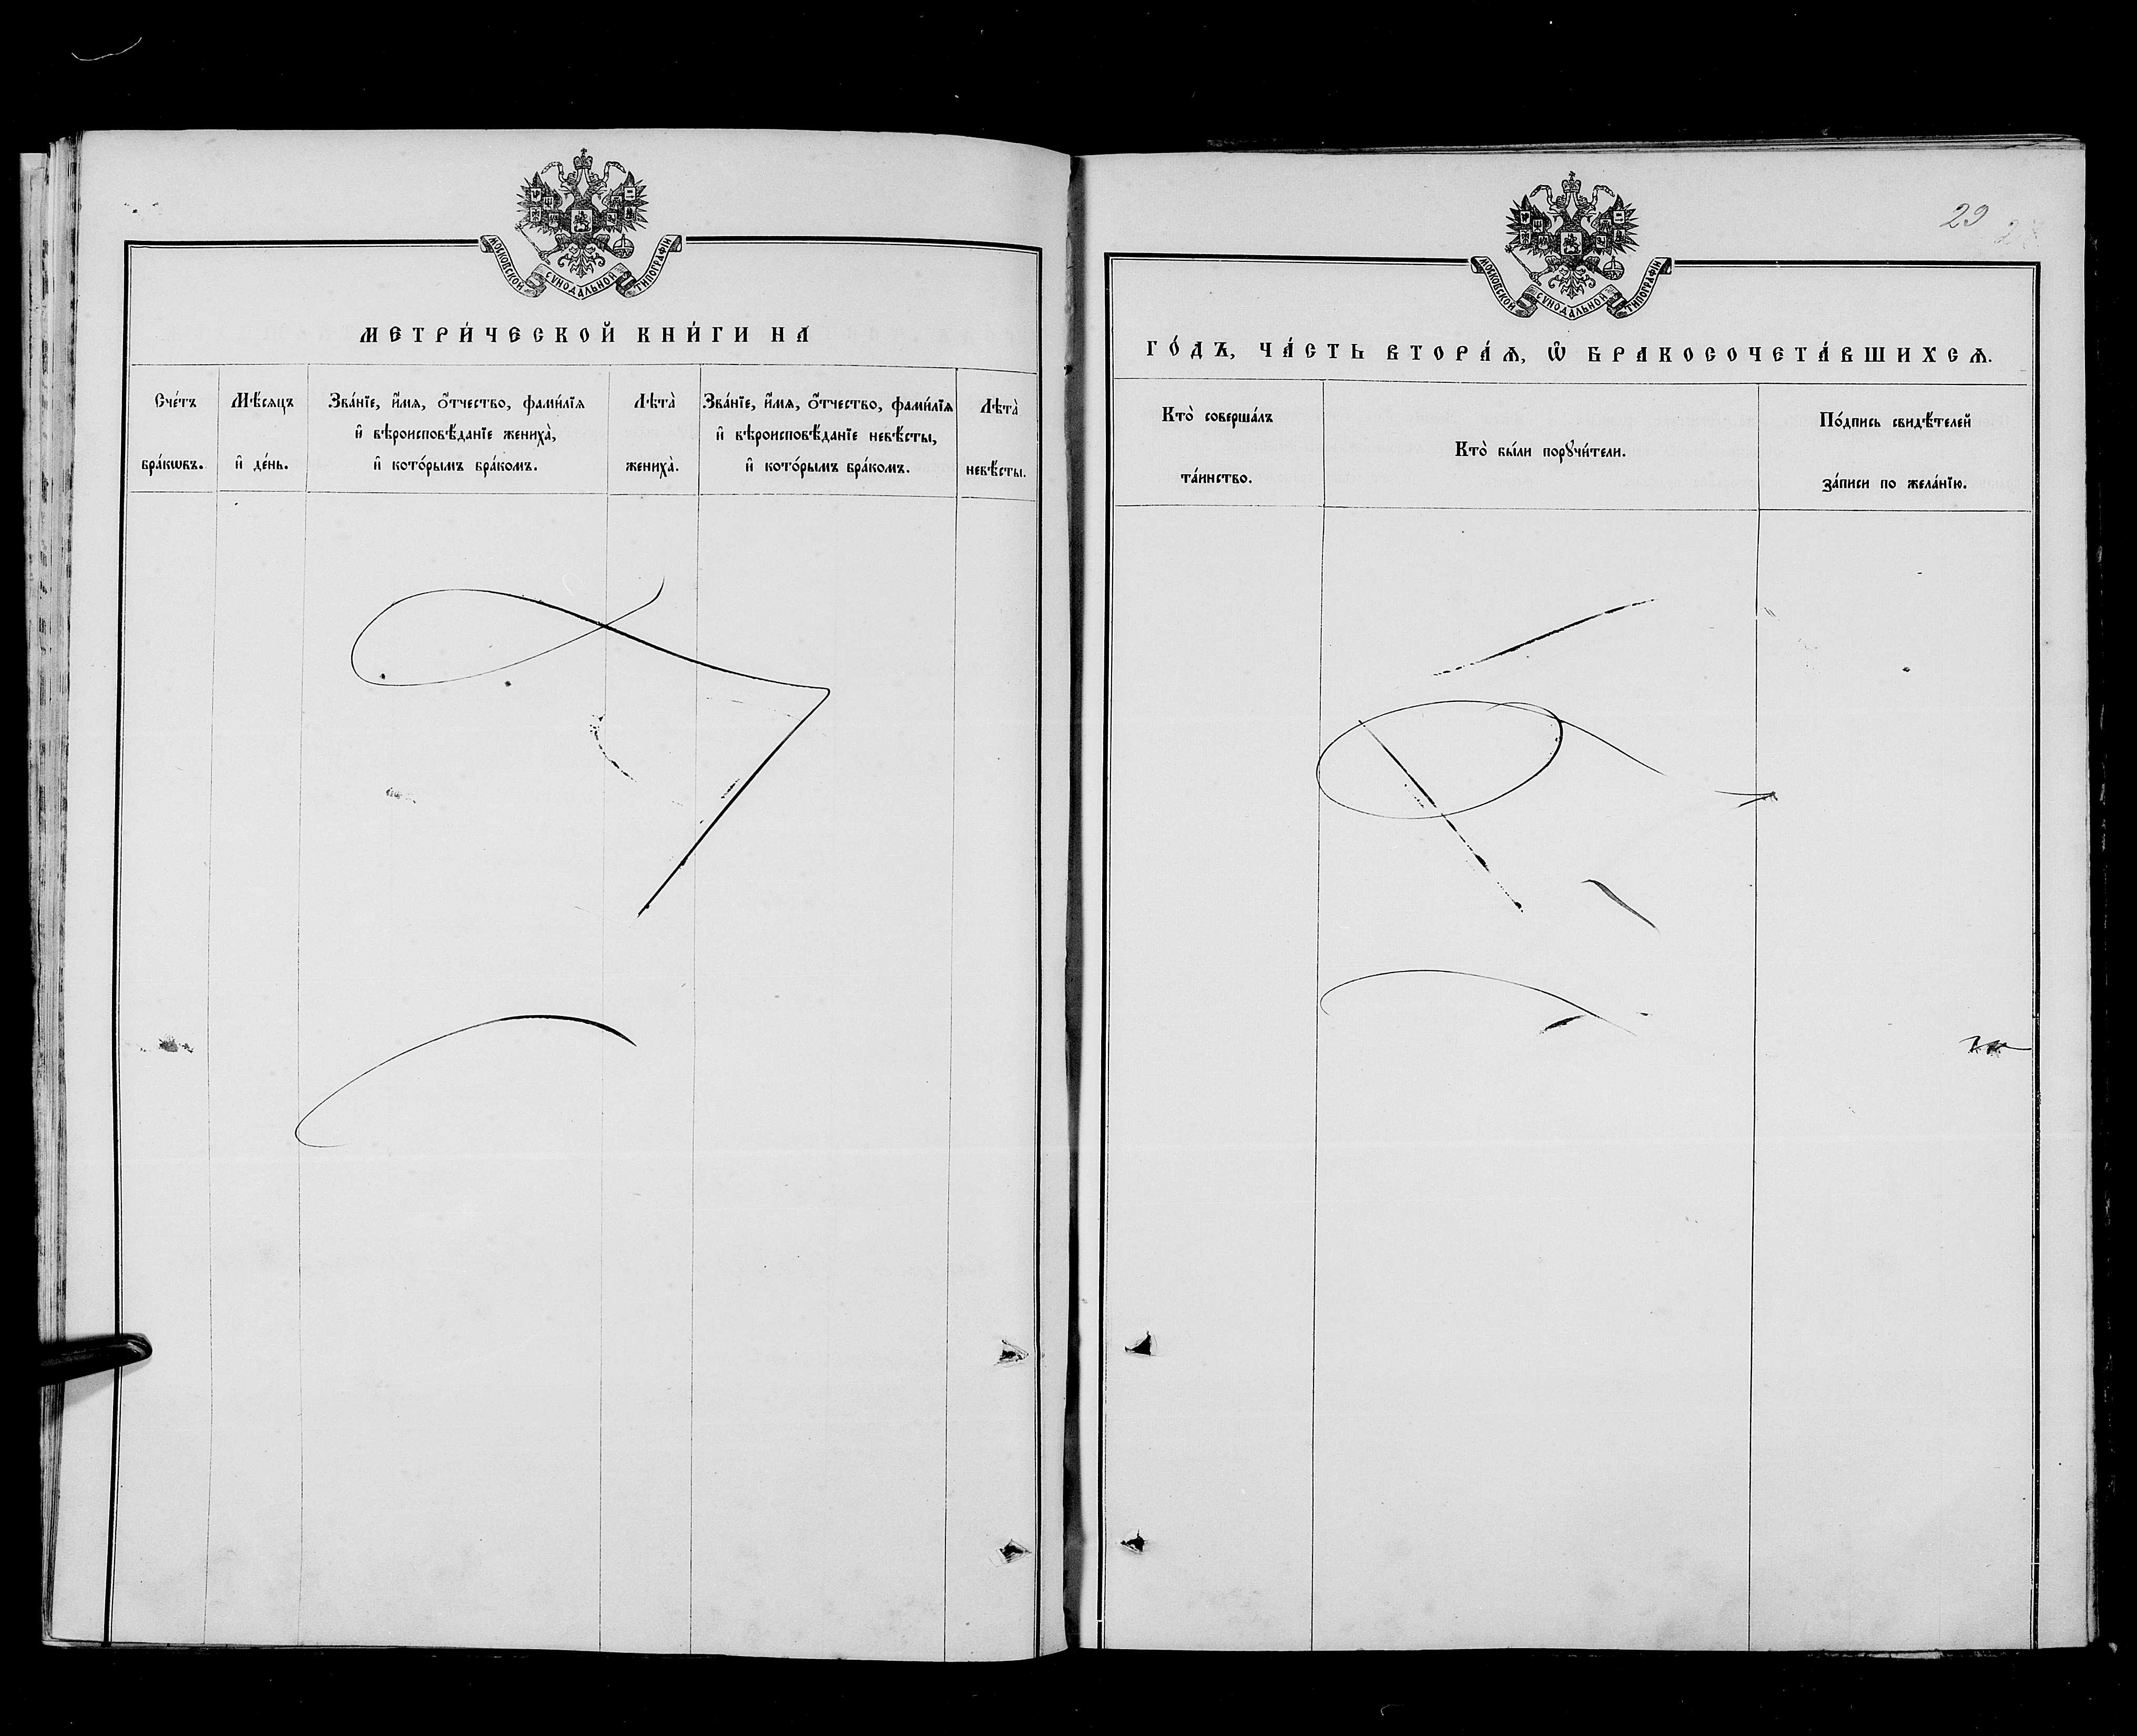 МОСКОВСКОЙ СѴНОДАЛЬНОЙ ТИПОГРАФІИ
МЕТРИ́ЧЕСКОЙ КНИ́ГИ НА
Сче́тъ
бра́кѡвъ.
Мѣ́сяцъ
и҆ де́нь.
Зва́нїе, и҆́мѧ, ѻ҆́тчество, фами́лїѧ
и҆ вѣроисповѣ́данїе жениха̀,
и҆ кото́рымъ бра́комъ.
Лѣта̀
жениха̀.
Зва́нїе, и҆́мѧ, ѻ҆́тчество, фами́лїѧ
и҆ вѣроисповѣ́данїе невѣ́сты,
и҆ кото́рымъ бра́комъ.
Лѣта̀
невѣ́сты.
29
МОСКОВСКОЙ СѴНОДАЛЬНОЙ ТИПОГРАФІИ
ГО́ДЪ, ЧА́СТЬ ВТОРА́Ѧ, Ѡ҆ БРАКОСОЧЕТА́ВШИХСѦ.
Кто̀ соверша́лъ
та́инство.
Кто̀ бы́ли порꙋчи́тели.
По́дпись свидѣ́телей
за́писи по жела́нїю.